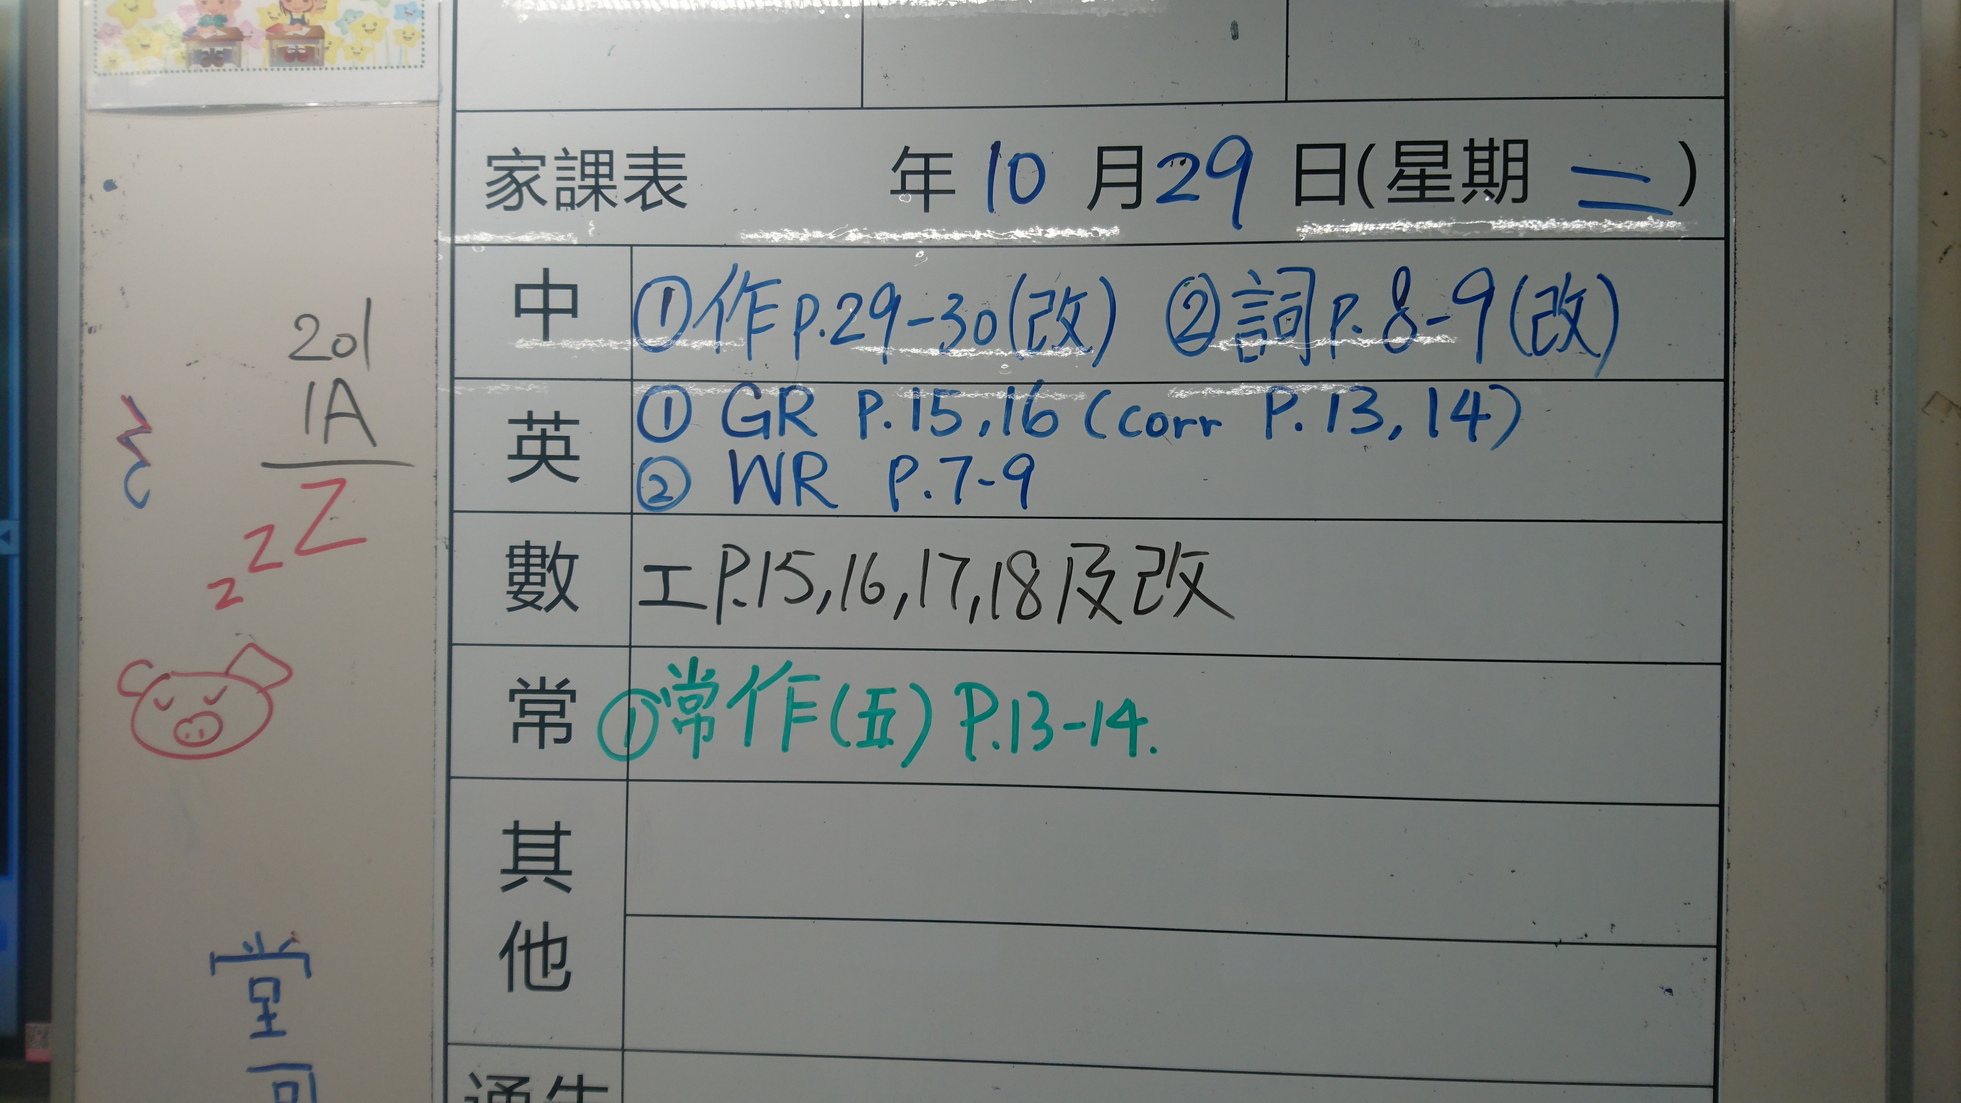 家課表 年 10 月 29 日(星期 二)
中 ①作 p.29-30(改) ②詞 p.8-9(改)
英 ① GR P.15,16 (corr P.13,14)
② WR P.7-9
數 工 P.15,16,17,18及改
常 ①常作(五) P.13-14.
其
他
201
1A
z z Z
堂